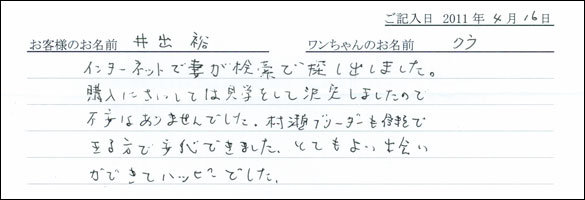 ご記入日 2011年4月16日
お客様のお名前 井出 裕 ワンちゃんのお名前 クウ
インターネットで妻が検索で探し出しました。
購入にさいしては見学をして決定しましたので
不安はありませんでした。村瀬ブリーダーも信頼で
きる方で安心できました。とてもよい出会い
ができてハッピーでした。